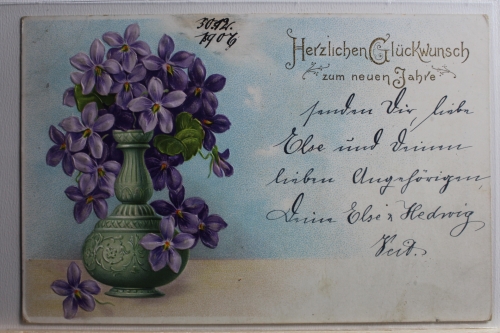 30.12.
1906
Herzlichen Glückwunsch
zum neuen Jahre
senden Dir, liebe
Else und Deinen
lieben Angehörigen
Deine Else u. Hedwig